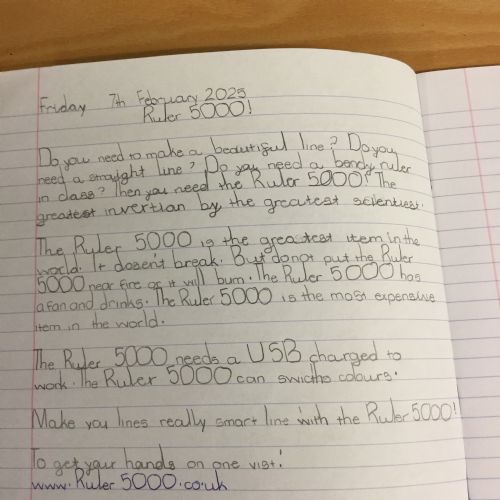 Friday 7th February 2025
Ruler 5000!
Do you need to make a beautiful line? Do you
need a straight line? Do you need a bendy ruler
in class? Then you need the Ruler 5000! The
greatest invertian by the greatest scientiest.
The Ruler 5000 is the greatest item in the
world. It dosen't break. But do not put the Ruler
5000 near fire or it will burn. The Ruler 5000 has
a fan and drinks. The Ruler 5000 is the most expensive
item in the world.
The Ruler 5000 needs a USB charged to
work. The Ruler 5000 can swicthe colours.
Make you lines really smart line with the Ruler 5000!
To get your hands on one vist:
www.Ruler5000.co.uk